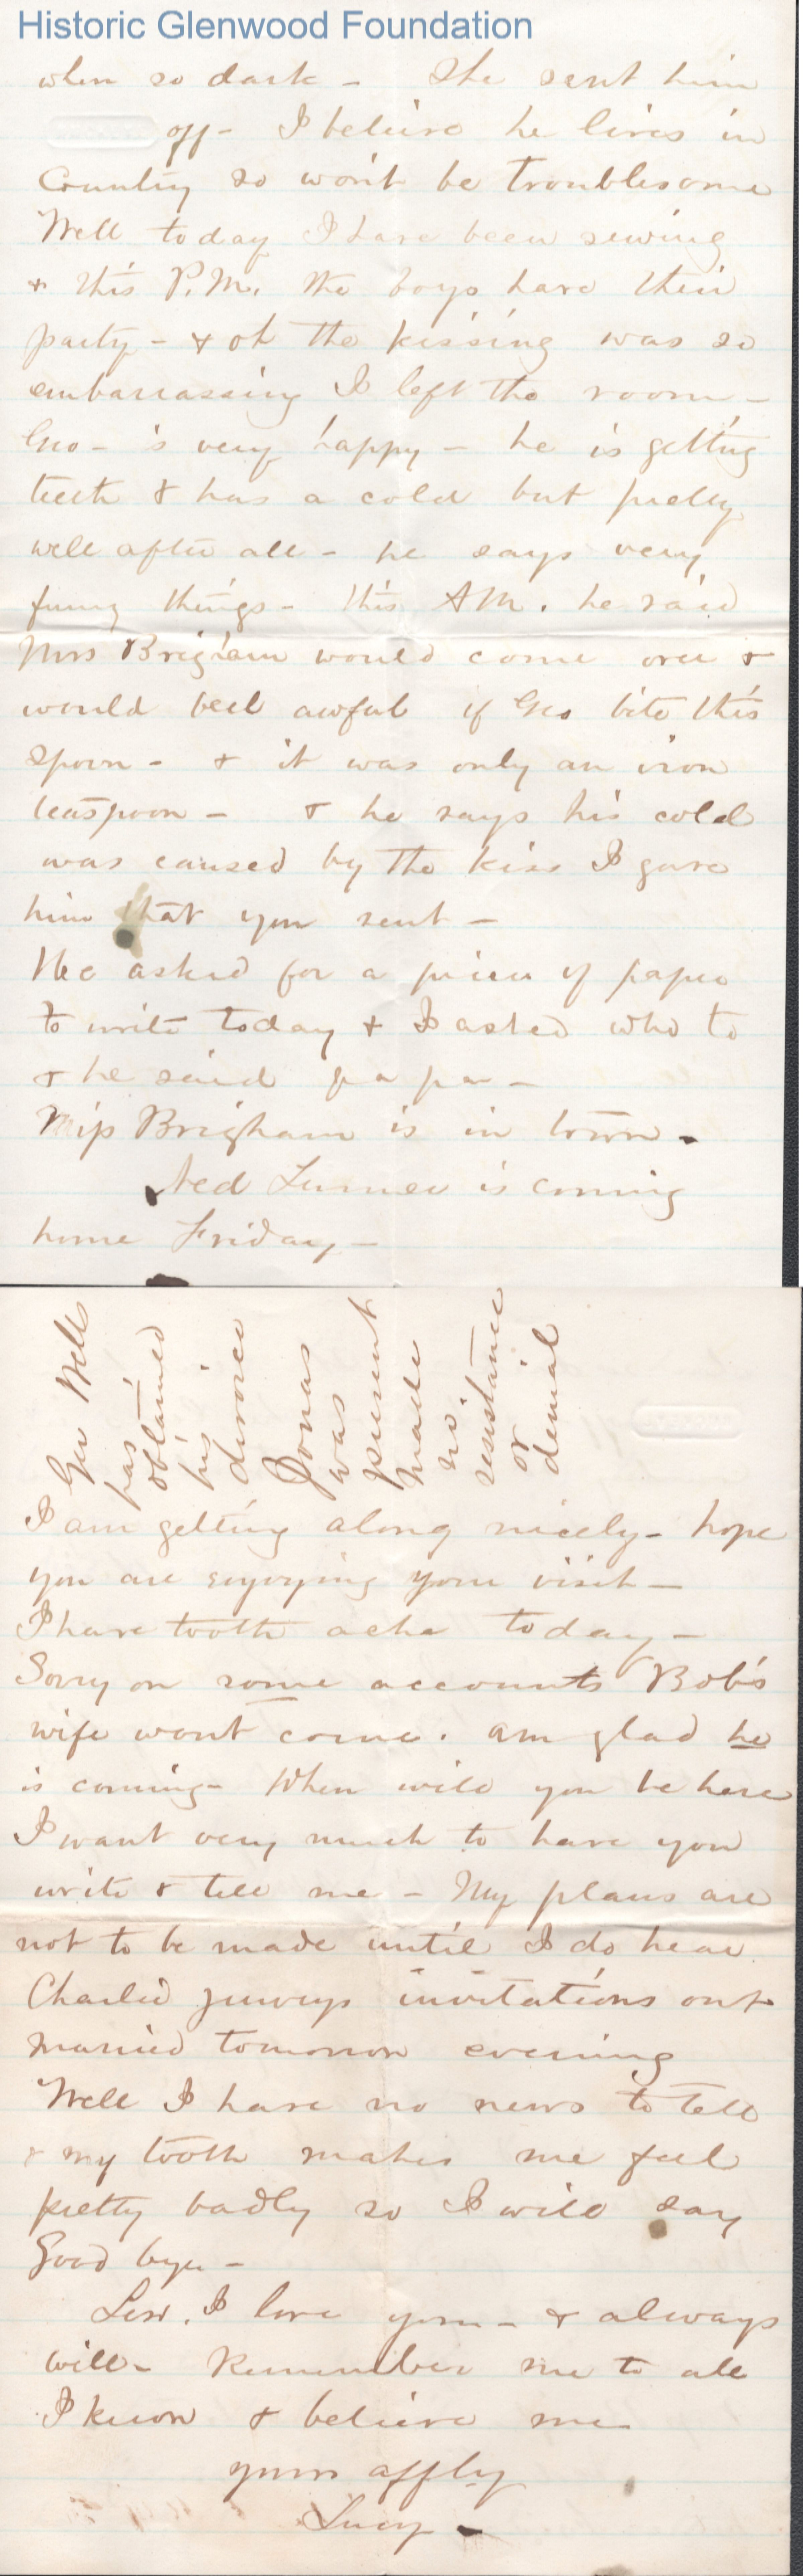 Historic Glenwood Foundation
when so dark - She sent him
off - I believe he lives in
Country so won't be troublesome
Well today I have been sewing
& this P.M. the boys have their
party - & oh the kissing was so
embarrassing I left the room -
Geo - is very happy - he is getting
teeth & has a cold but pretty
well after all - he says very
funny things - this AM. he said
Mrs Brigham would come over &
would feel awful if Geo bite this
spoon - & it was only an iron
teaspoon - & he says his cold
was caused by the kiss I gave
him that you sent -
He asked for a piece of paper
to write today & I asked who to
& he said papa -
Brigham is in town -
Ned Turner is coming
home Friday -
Geo Wells
has
obtained
his
divorce
Jonas
was
present
made
no
resistance
or
denial
I am getting along nicely - hope
you are enjoying your visit -
I have tooth ache today -
Sorry on some accounts Bob's
wife wont come. am glad he
is coming - When will you be here
I want very much to have you
write & tell me - My plans are
not to be made until I do hear
Charlie invitations out
married tomorrow evening
Well I have no news to tell
& my tooth makes me feel
pretty badly so I will say
Good bye -
Lew. I love you - & always
will - Remember me to all
I know & believe me
yours affly
Lucy -